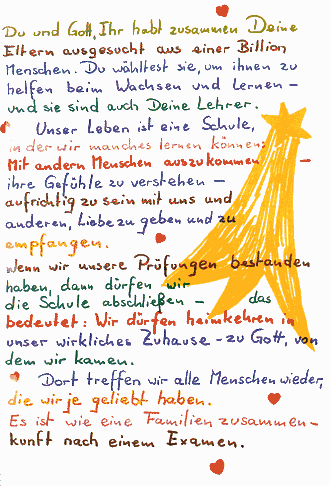 Du und Gott, Ihr habt zusammen Deine
Eltern ausgesucht aus einer Billion
Menschen. Du wähltest sie, um ihnen zu
helfen beim Wachsen und Lernen –
und sie sind auch Deine Lehrer.
Unser Leben ist eine Schule,
in der wir manches lernen können:
Mit andern Menschen auszukommen –
ihre Gefühle zu verstehen –
aufrichtig zu sein mit uns und
anderen, Liebe zu geben und zu
empfangen.
Wenn wir unsere Prüfungen bestanden
haben, dann dürfen wir
die Schule abschließen – das
bedeutet: Wir dürfen heimkehren in
unser wirkliches Zuhause – zu Gott, von
dem wir kamen.
Dort treffen wir alle Menschen wieder,
die wir je geliebt haben.
Es ist wie eine Familienzusammen-
kunft nach einem Examen.